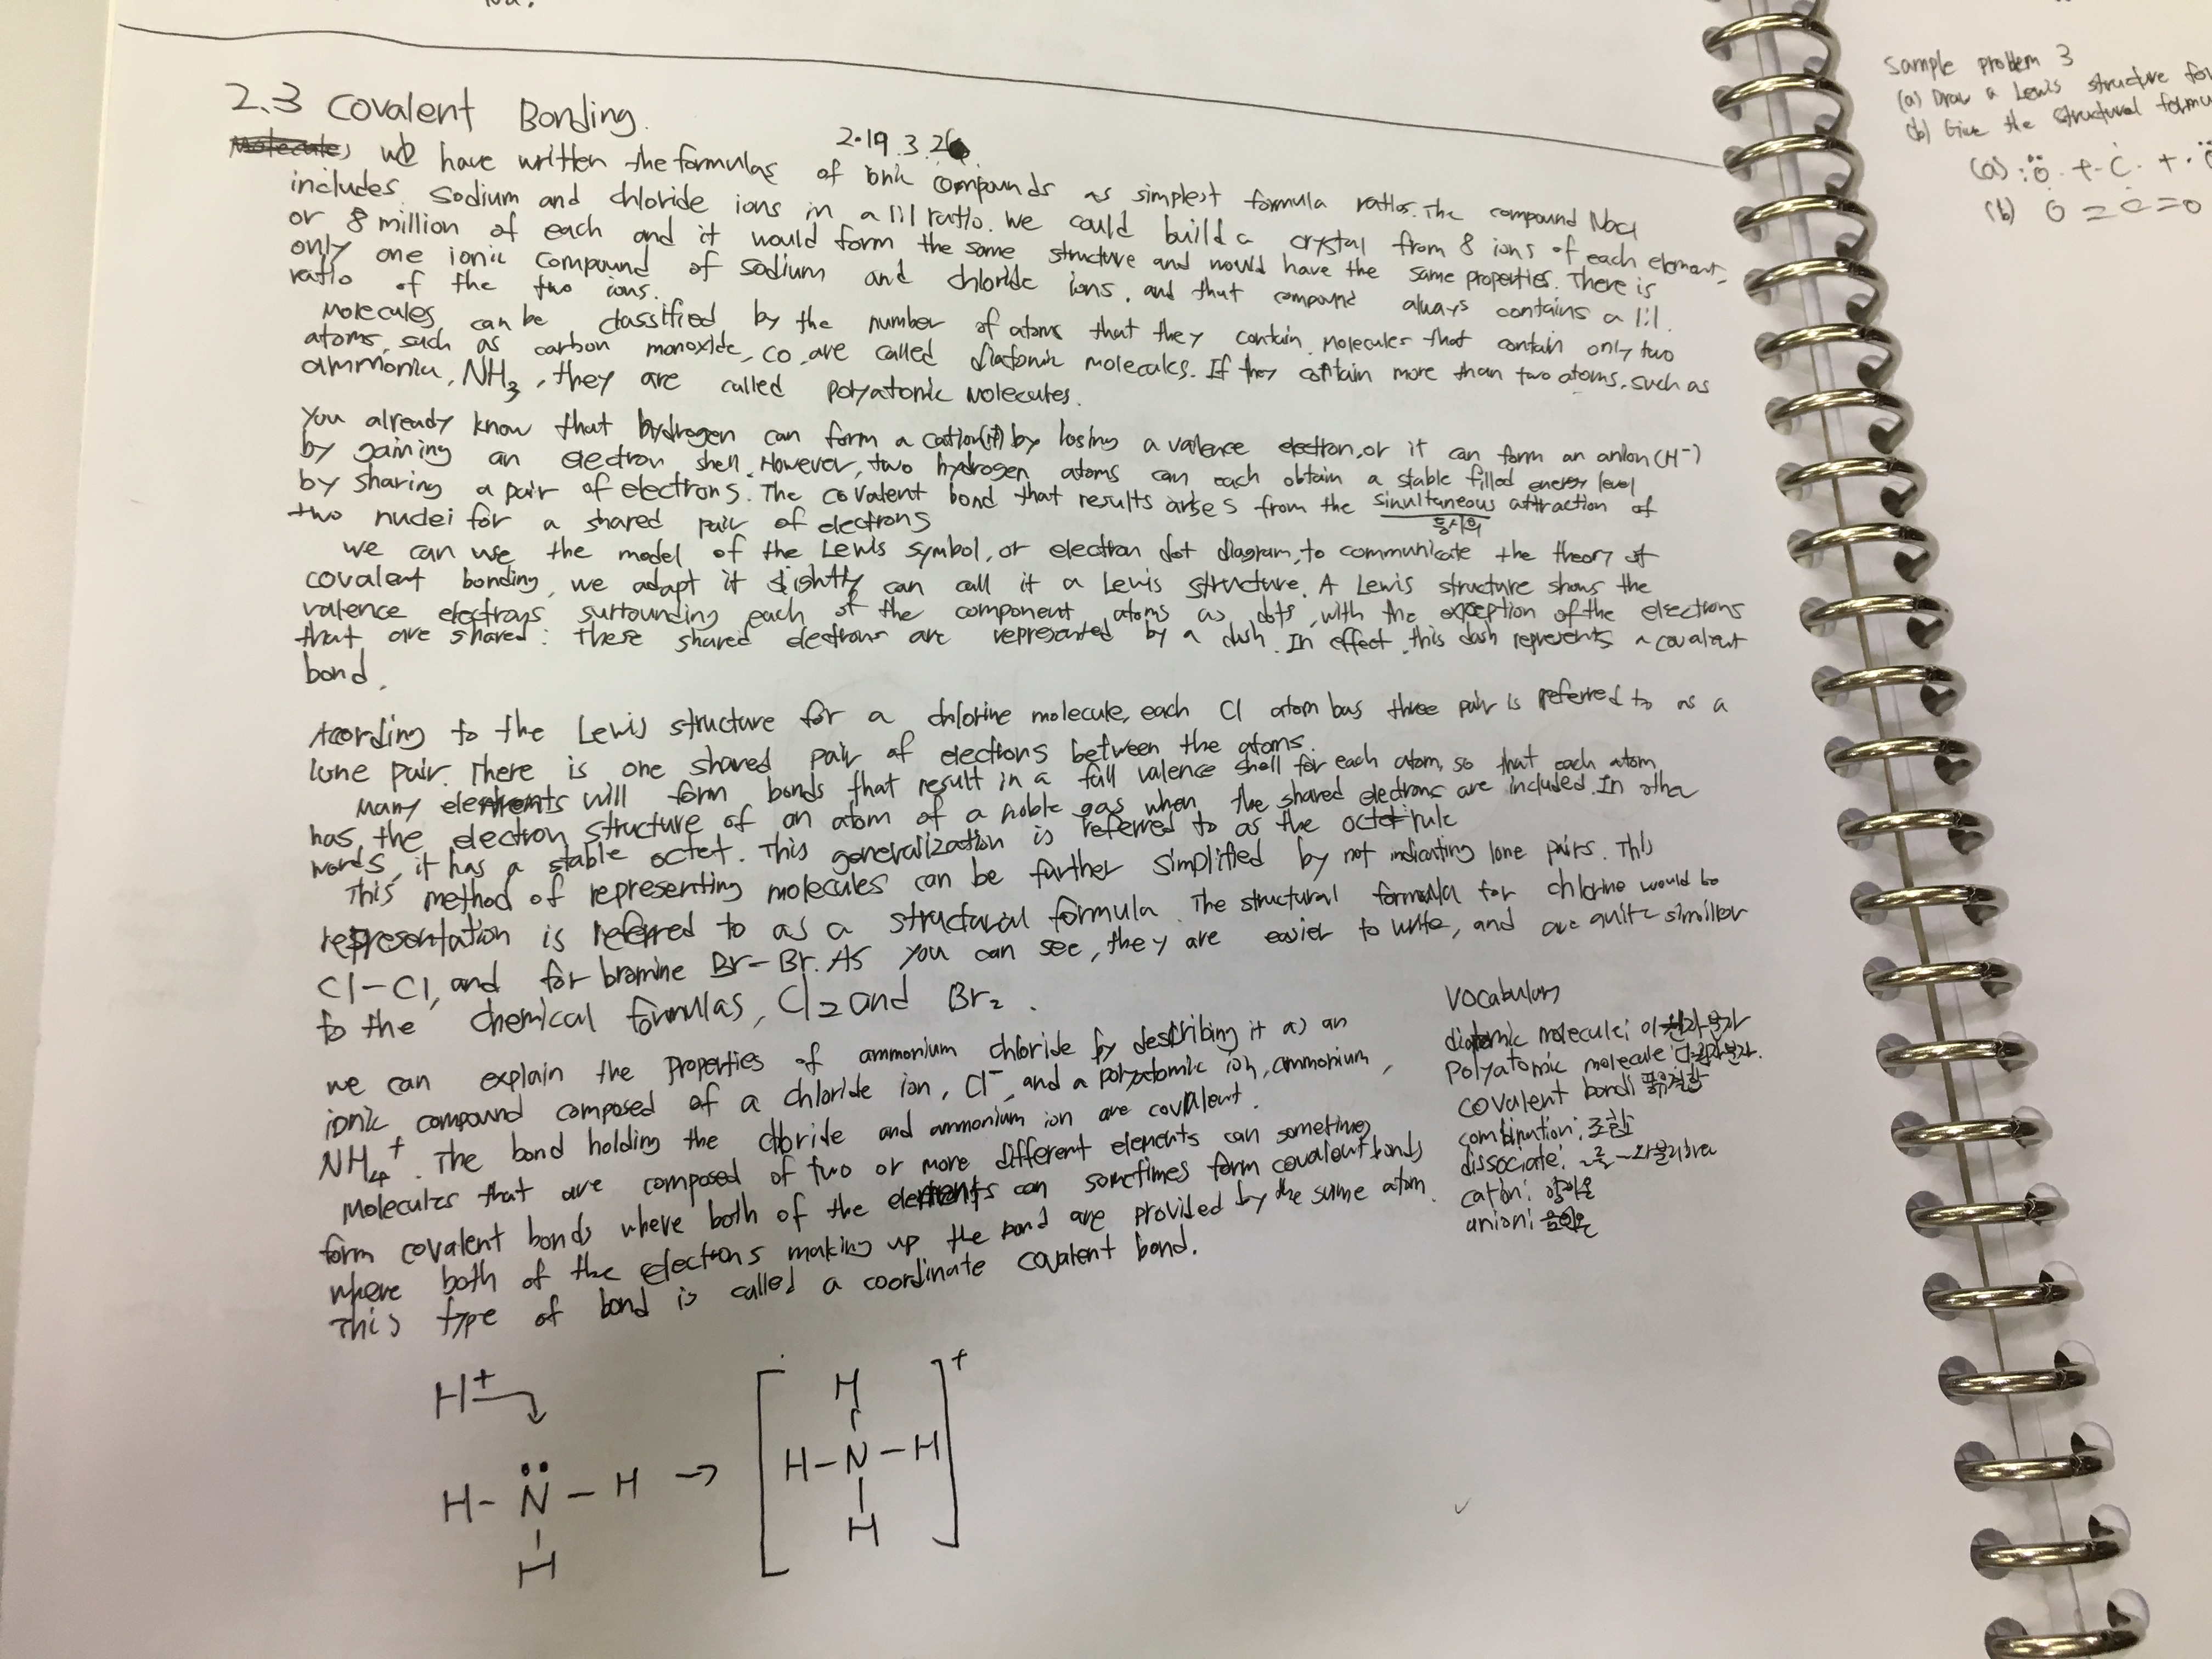 Na.
2.3 Covalent Bonding.
2.19.3.26
we have written the formulas of ionic compounds as simplest formula ratios. The compound NaCl
includes sodium and chloride ions in a 1:1 ratio. We could build a crystal from 8 ions of each element,
or 8 million of each and it would form the same structure and would have the same properties. There is
only one ionic compound of sodium and chloride ions, and that compound always contains a 1:1.
ratio of the two ions.
Molecules can be classified by the number of atoms that they contain. Molecules that contain only two
atoms, such as carbon monoxide, CO, are called diatomic molecules. If they contain more than two atoms, such as
ammonia, NH3, they are called polyatomic molecules.
You already know that hydrogen can form a cation(H+) by losing a valence electron, or it can form an anion (H-)
by gaining an electron shell. However, two hydrogen atoms can each obtain a stable filled energy level
by sharing a pair of electrons. The covalent bond that results arises from the simultaneous attraction of
동시의
two nuclei for a shared pair of electrons
we can use the model of the Lewis symbol, or electron dot diagram, to communicate the theory of
covalent bonding, we adapt it slightly can call it a Lewis structure. A Lewis structure shows the
valence electrons surrounding each of the component atoms as dots, with the exception of the electrons
that are shared: These shared electrons are represented by a dash. In effect, this dash represents a covalent
bond.
According to the Lewis structure for a chlorine molecule, each Cl atom has three pair is referred to as a
lone pair. There is one shared pair of electrons between the atoms.
Many elements will form bonds that result in a full valence shell for each atom, so that each atom
has the electron structure of an atom of a noble gas when the shared electrons are included. In other
words, it has a stable octet. This generalization is referred to as the octet rule
This method of representing molecules can be further simplified by not indicating lone pairs. This
representation is referred to as a structural formula. The structural formula for chlorine would be
Cl-Cl, and for bromine Br-Br. As you can see, they are easier to write, and are quite similar
to the chemical formulas, Cl2 and Br2.
we can explain the properties of ammonium chloride by describing it as an
ionic compound composed of a chloride ion, Cl-, and a polyatomic ion, ammonium,
NH4+. The bond holding the chloride and ammonium ion are covalent.
Molecules that are composed of two or more different elements can sometimes
form covalent bonds where both of the elements can sometimes form covalent bonds
where both of the electrons making up the bond are provided by the same atom.
This type of bond is called a coordinate covalent bond.
Vocabulary
diatomic molecule: 이원자분자
polyatomic molecule: 다원자분자.
covalent bond: 공유결합
combination: 조합
dissociate:
cation: 양이온
anion: 음이온
H+
H-N-H → [H-N-H]+
H
H
H
Sample problem 3
(a) Draw a Lewis structure for
(b) Give the structural formu
(a) :O· + ·C· + ·
(b) O=C=O